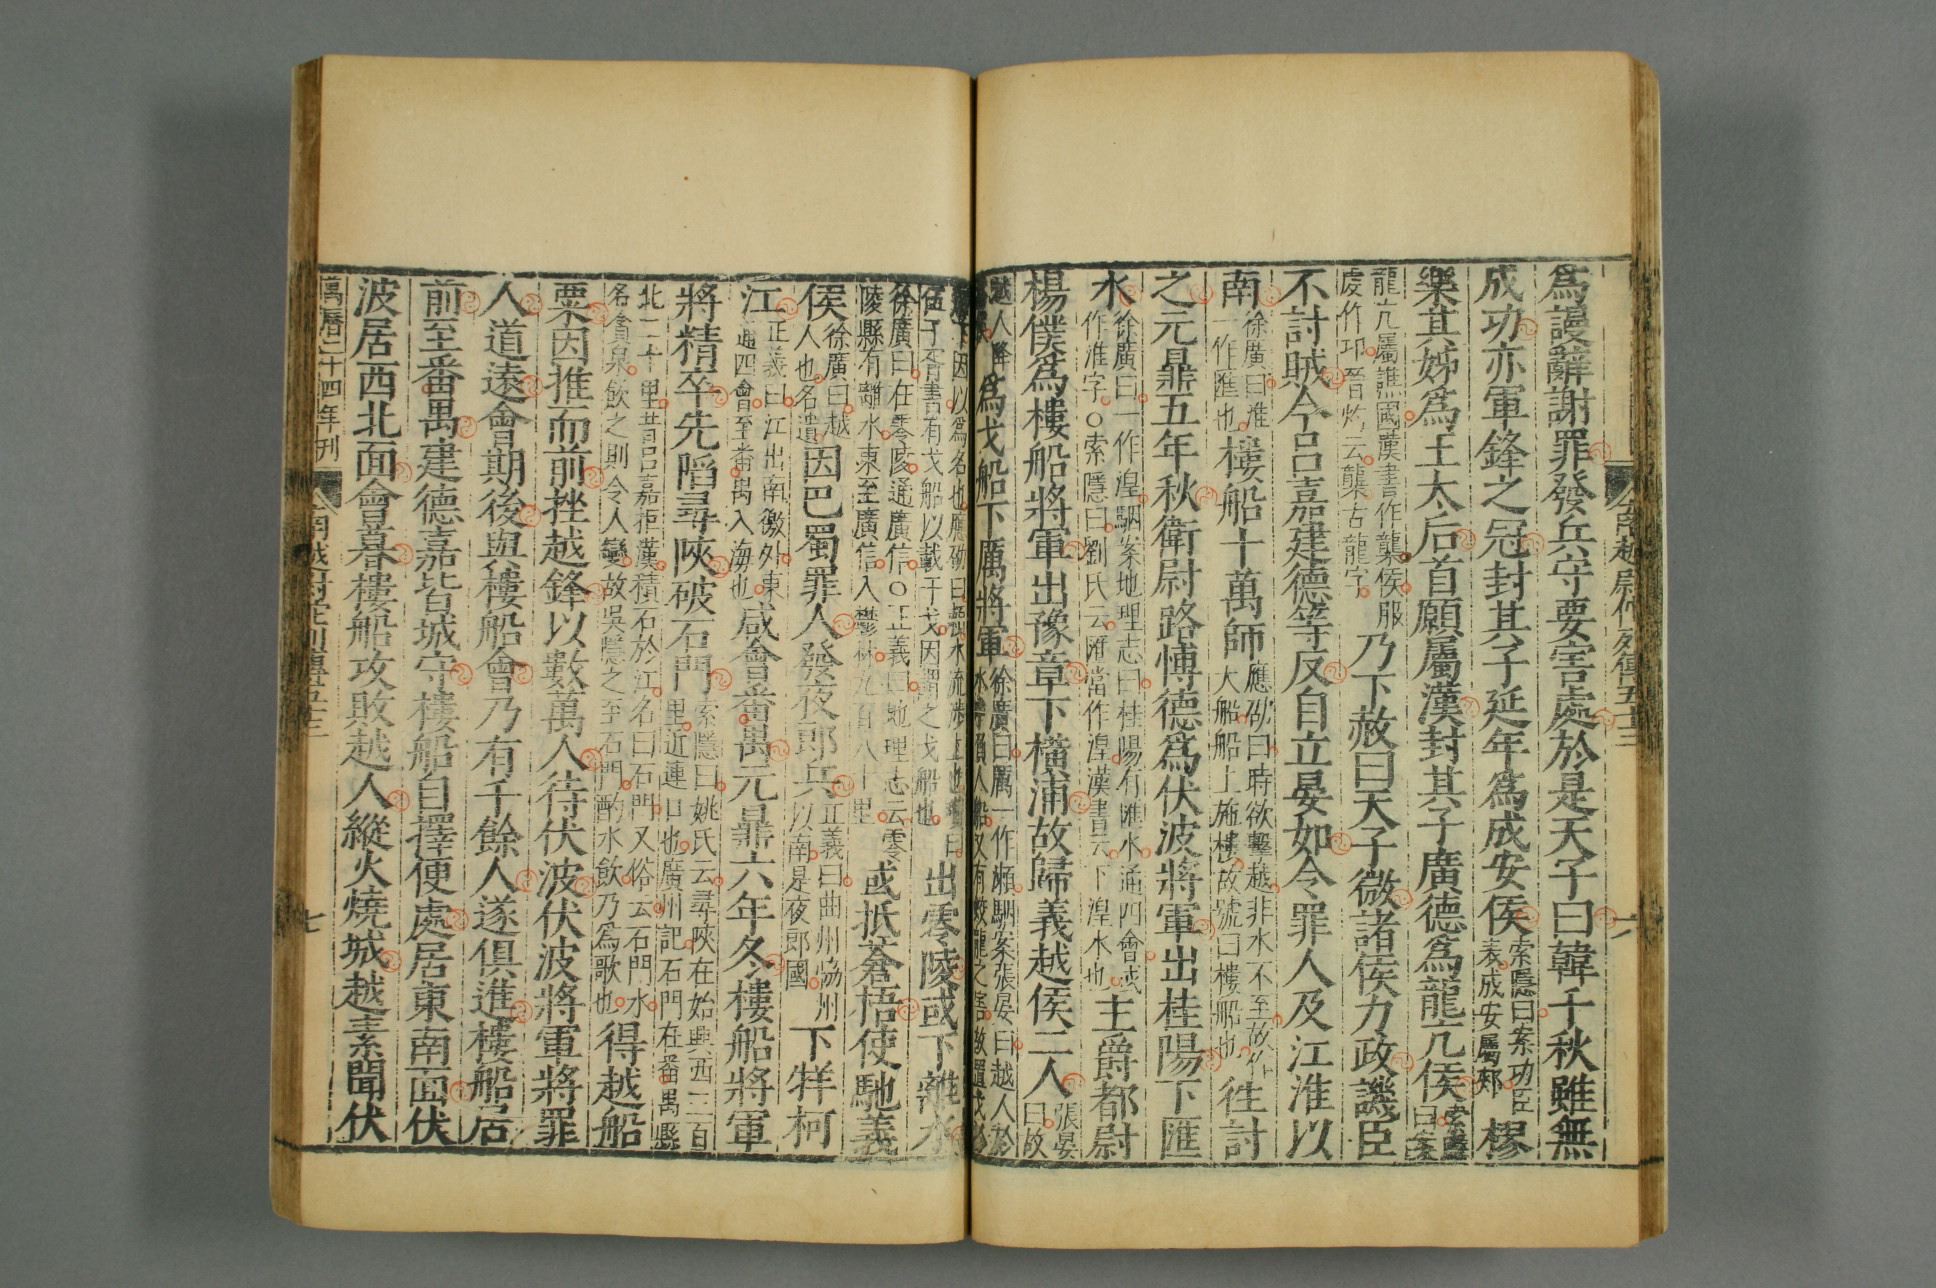 史記南越尉佗列傳五十三　六
為謾辭謝罪發兵守要害處於是天子曰韓千秋雖無
成功亦軍鋒之冠封其子延年為成安侯索隱曰案功臣表成安屬郟樛
樂其姊為王太后首願屬漢封其子廣德為龍亢侯索隱曰案
龍亢屬譙國漢書作龔侯服虔作卭晉灼云龔古龍字乃下赦曰天子微諸侯力政譏臣
不討賊今呂嘉建德等反自立晏如令罪人及江淮以
南徐廣曰淮一作匯也樓船十萬師應劭曰時欲擊越非水不至故作大船船上施樓故號曰樓船也往討
之元鼎五年秋衛尉路博德為伏波將軍出桂陽下匯
水徐廣曰一作湟駰案地理志曰桂陽有匯水通四會或作淮字○索隱曰劉氏云匯當作湟漢書云下湟水也主爵都尉
楊僕為樓船將軍出豫章下橫浦故歸義越侯二人張晏曰故
越人降為侯為戈船下厲將軍徐廣曰厲一作瀨駰案張晏曰越人於水中負人船又有蛟龍之害故置戈於
船下因以為名也應劭曰瀨水流涉上也瓚曰伍子胥書有戈船以載干戈因謂之戈船也出零陵或下離水
徐廣曰在零陵通廣信○正義曰地理志云零陵縣有離水東至廣信入鬱林九百八十里或抵蒼梧使馳義
侯徐廣曰越人也名遺因巴蜀罪人發夜郎兵正義曰曲州協州以南是夜郎國下牂柯
江正義曰江出南徼外東通四會至番禺入海也咸會番禺元鼎六年冬樓船將軍
將精卒先陷尋陝破石門索隱曰姚氏云尋陝在始興西三百里近連口也廣州記石門在番禺縣
北二十里昔呂嘉拒漢積石於江名曰石門又俗云石門水名貪泉飲之則令人變故吳隱之至石門酌水飲乃為歌也得越船
粟因推而前挫越鋒以數萬人待伏波伏波將軍將罪
人道遠會期後與樓船會乃有千餘人遂俱進樓船居
前至番禺建德嘉皆城守樓船自擇便處居東南面伏
波居西北面會暮樓船攻敗越人縱火燒城越素聞伏
萬曆二十四年刊　史南越尉佗列傳五十三　七